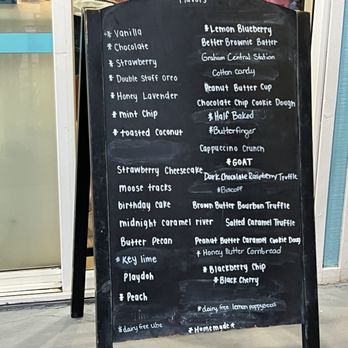 Flavors
* Vanilla
* Chocolate
* Strawberry
* Double Stuff Oreo
* Honey Lavender
* mint Chip
* toasted Coconut
Strawberry Cheesecake
moose tracks
birthday cake
midnight caramel river
Butter Pecan
* Key lime
Playdoh
* Peach
* dairy free
* Lemon Blueberry
Better Brownie Batter
Graham Central Station
Cotton candy
Peanut Butter Cup
Chocolate Chip Cookie Dough
* Half Baked
* Butterfinger
Cappuccino Crunch
* GOAT
Dark Chocolate Raspberry Truffle
* Biscoff
Brown Butter Bourbon Truffle
Salted Caramel Truffle
Peanut Butter Caramel Cookie Doug
* Honey Butter Cornbread
* Blackberry Chip
* Black Cherry
* dairy free lemon poppyseed
* Homemade *